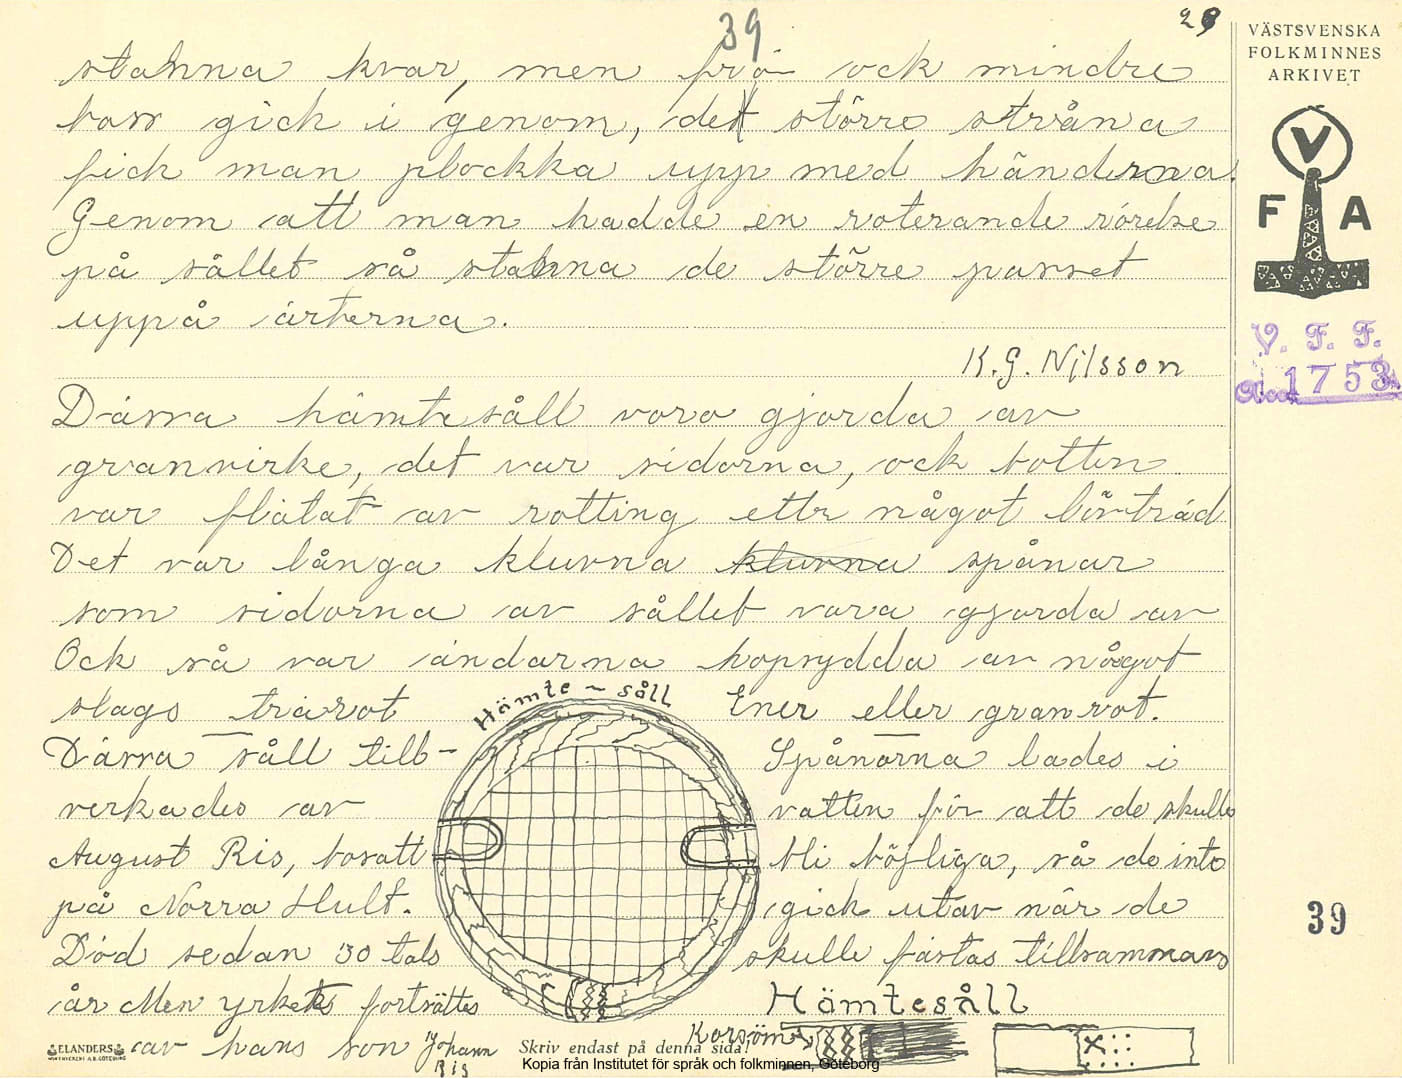 39
29
VÄSTSVENSKA
FOLKMINNES
ARKIVET
V
F A
V. F. F.
Acc. 1753.
stanna kvar, men frö ock mindre
bass gich i genom, det större stråna
fick man plockka upp med händerna.
Genom att man hadde en roterande rörelse
på sållet så stanna de större
uppå ärterna.
K.G. Nilsson
Dässa hämtesåll voro gjorda av
granvirke, det var sidorna, ock botten
var flätat av rotting ettr något lövträd
Det var långa kluvna kluvna spånar
som sidorna av sållet vara gjorda av
Ock så var ändarna hopsydda av något
slags trärot
Ener eller granrot.
Hämte ~ såll
Dässa såll till-
verkades av
August Ris, bosatt
på Norra Hult.
Död sedan 30 tals
år Men yrkets fortsättes
av hans son Johann
Ris
Spånorna lades i
vatten för att de skulle
bli böjliga, så de inte
gick utav når de
skulle fästas tillsammans
Hämtesåll
Korssöm
39
ELANDERS
Skriv endast på denna sida!
Kopia från Institutet för språk och folkminnen, Göteborg